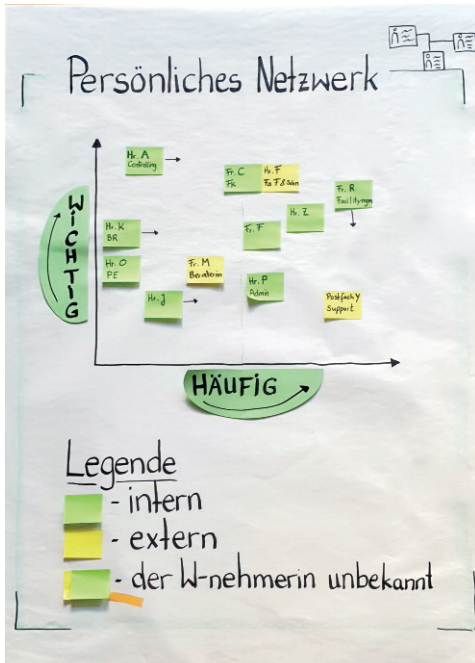 Persönliches Netzwerk
Hr. A
Controlling
Fr. C
Fk
Hr. F
Fa F & Söhn
Fr. R
Facilitymgm
Hr. Z
Hr. K
BR
Fr. F
Hr. O
PE
Fr. M
Beraterin
Hr. P
Admin
Hr. J
Postfach Y
Support
WICHTIG
HÄUFIG
Legende
- intern
- extern
- der W-nehmerin unbekannt